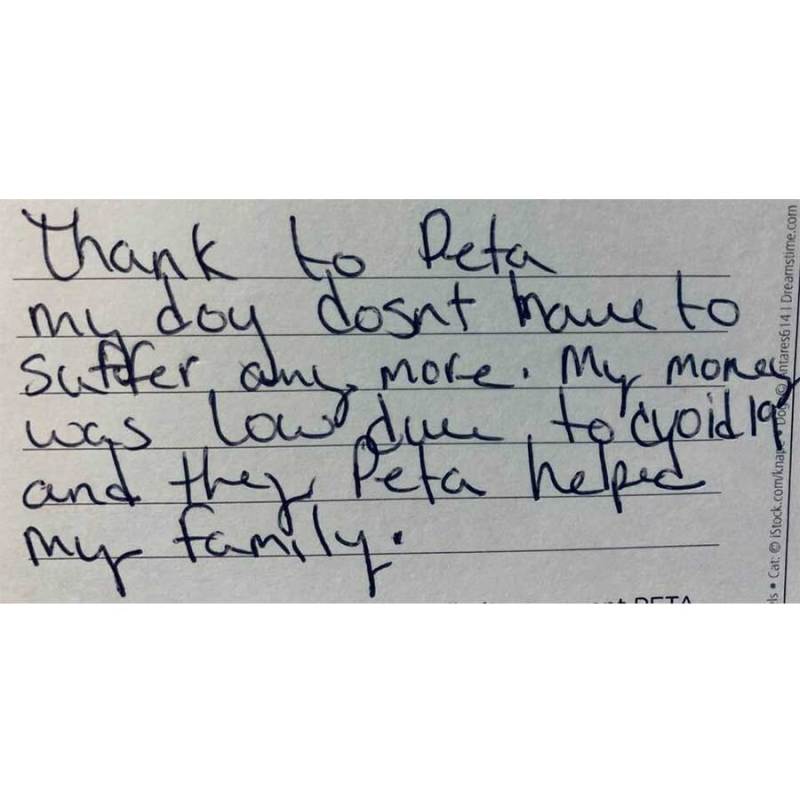 Thank to Peta
my dog dosnt have to
suffer any more. My money
was low due to cvoid 19
and they Peta helped
my family.
PETA
els • Cat: © iStock.com/knape • Dog: © Antares614 | Dreamstime.com